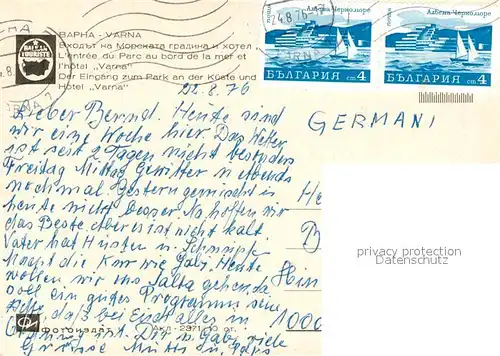 ВАРНА - VARNA
Входът на Морската градина и хотел
L'entrée du Parc au bord de la mer et
l'hôtel „Varna"
Der Eingang zum Park an der Küste und
Hotel „Varna"
BALKAN
TOURISTE
поща
Албена Черноморе
БЪЛГАРИЯ ст 4
поща
Албена Черноморе
БЪЛГАРИЯ ст 4
.8.76
22.8.76
Lieber Bernd. Heute sind
wir eine Woche hier. Das Wetter
ist seit 2 Tagen nicht besonders
Freitag Mittag Gewitter u. abends
nochmal. Gestern gemischt u.
heute nicht besser. Na hoffen wir
das Beste, aber es ist nicht kalt.
Vater hat Husten u. Schnupfen
Macht die Kur wie Gabi. Heute
wollen wir ins gehen, da
soll ein gutes Programm sein
Hoffe, daß bei Euch alles in
Ordnung ist. Dir u. Gabi viele
Grüsse Mutti u.
GERMANI
He
B
Hin
1000
privacy protection
Datenschutz
Фотоиздат
АКЛ - 2371 10 ст.